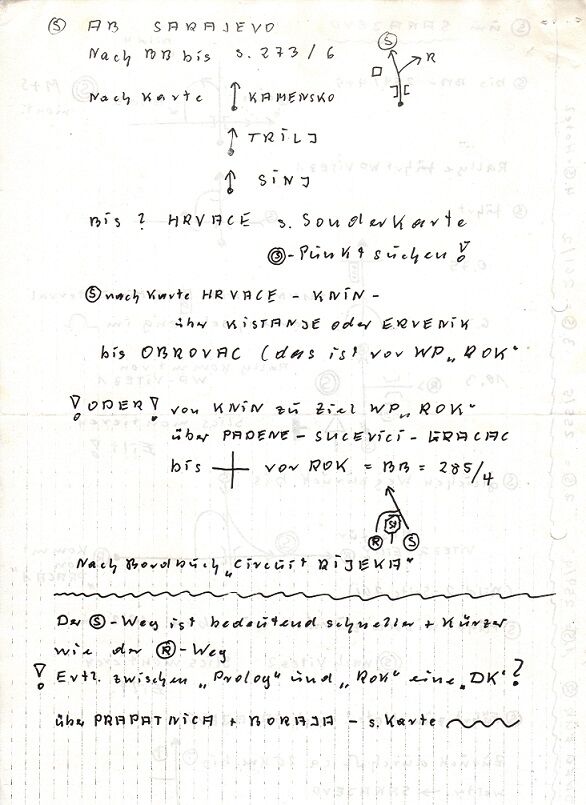 Ⓢ AB SARAJEVO
Nach BB bis S. 273/6
Ⓢ R
Nach Karte ↑ KAMENSKO
↑ TRILJ
↑ SINJ
Bis ? HRVACE s. Sonderkarte
Ⓢ-Punkt suchen!
Ⓢ nach Karte HRVACE - KNIN -
über KISTANJE oder ERVENIK
bis OBROVAC (das ist vor WP „ROK"
! ODER ! von KNIN zu Ziel WP „ROK"
über PADENE - SUCEVICI - GRACAC
bis ┼ vor ROK = BB = 285/4
Ⓡ St Ⓢ
Nach Bordbuch „Circuit RIJEKA"
Der Ⓢ-Weg ist bedeutend schneller + Kürzer
wie der Ⓡ-Weg
! Evtl. zwischen „Prolog" und „ROK" eine „DK" ?
über PRAPATNICA + BORAJA - s. Karte